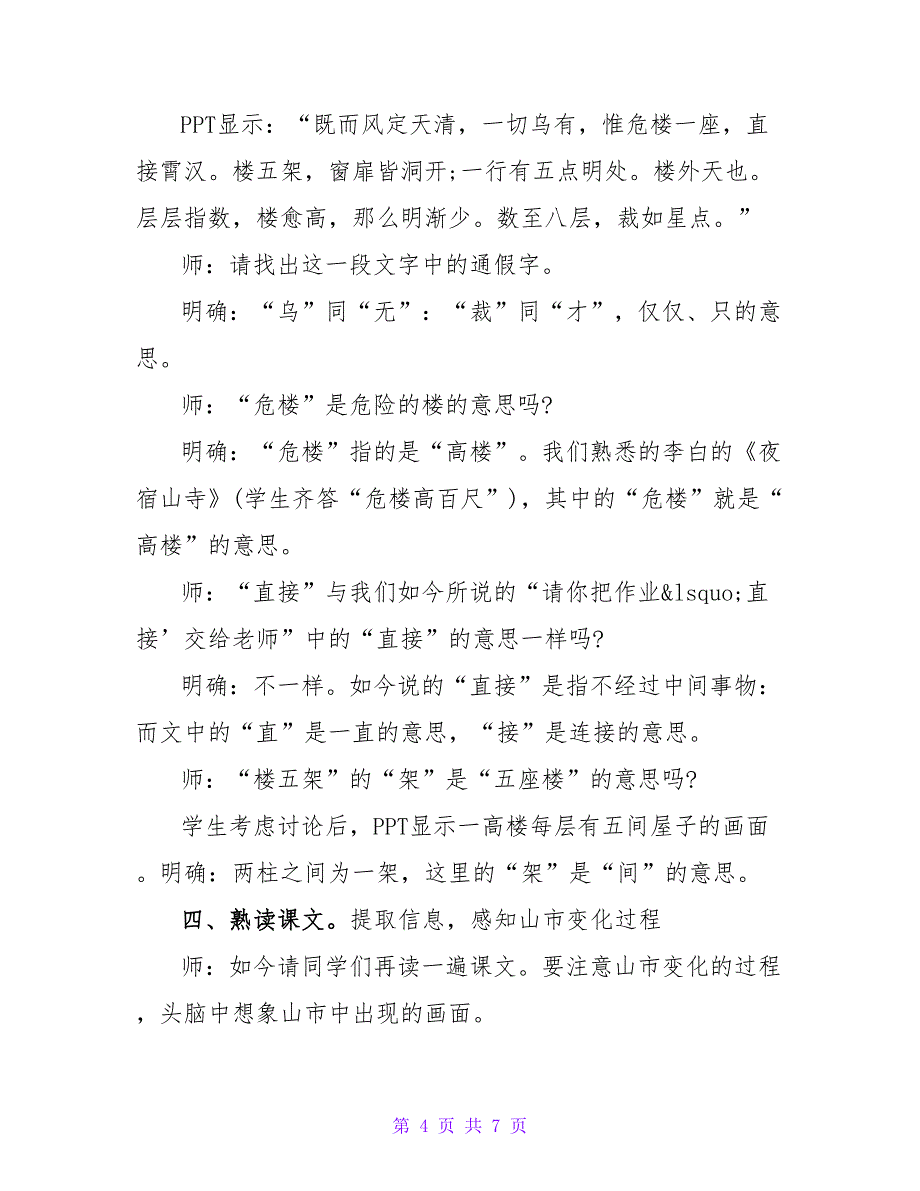 PPT显示：“既而风定天清，一切乌有，惟危楼一座，直
接霄汉。楼五架，窗扉皆洞开;一行有五点明处。楼外天也。
层层指数，楼愈高，那么明渐少。数至八层，裁如星点。”
师：请找出这一段文字中的通假字。
明确：“乌”同“无”：“裁”同“才”，仅仅、只的意
思。
师：“危楼”是危险的楼的意思吗?
明确：“危楼”指的是“高楼”。我们熟悉的李白的《夜
宿山寺》(学生齐答“危楼高百尺”)，其中的“危楼”就是“
高楼”的意思。
师：“直接”与我们如今所说的“请你把作业&lsquo;直
接’交给老师”中的“直接”的意思一样吗?
明确：不一样。如今说的“直接”是指不经过中间事物：
而文中的“直”是一直的意思，“接”是连接的意思。
师：“楼五架”的“架”是“五座楼”的意思吗?
学生考虑讨论后，PPT显示一高楼每层有五间屋子的画面
。明确：两柱之间为一架，这里的“架”是“间”的意思。
四、熟读课文。提取信息，感知山市变化过程
师：如今请同学们再读一遍课文。要注意山市变化的过程
，头脑中想象山市中出现的画面。
第 4 页 共 7 页